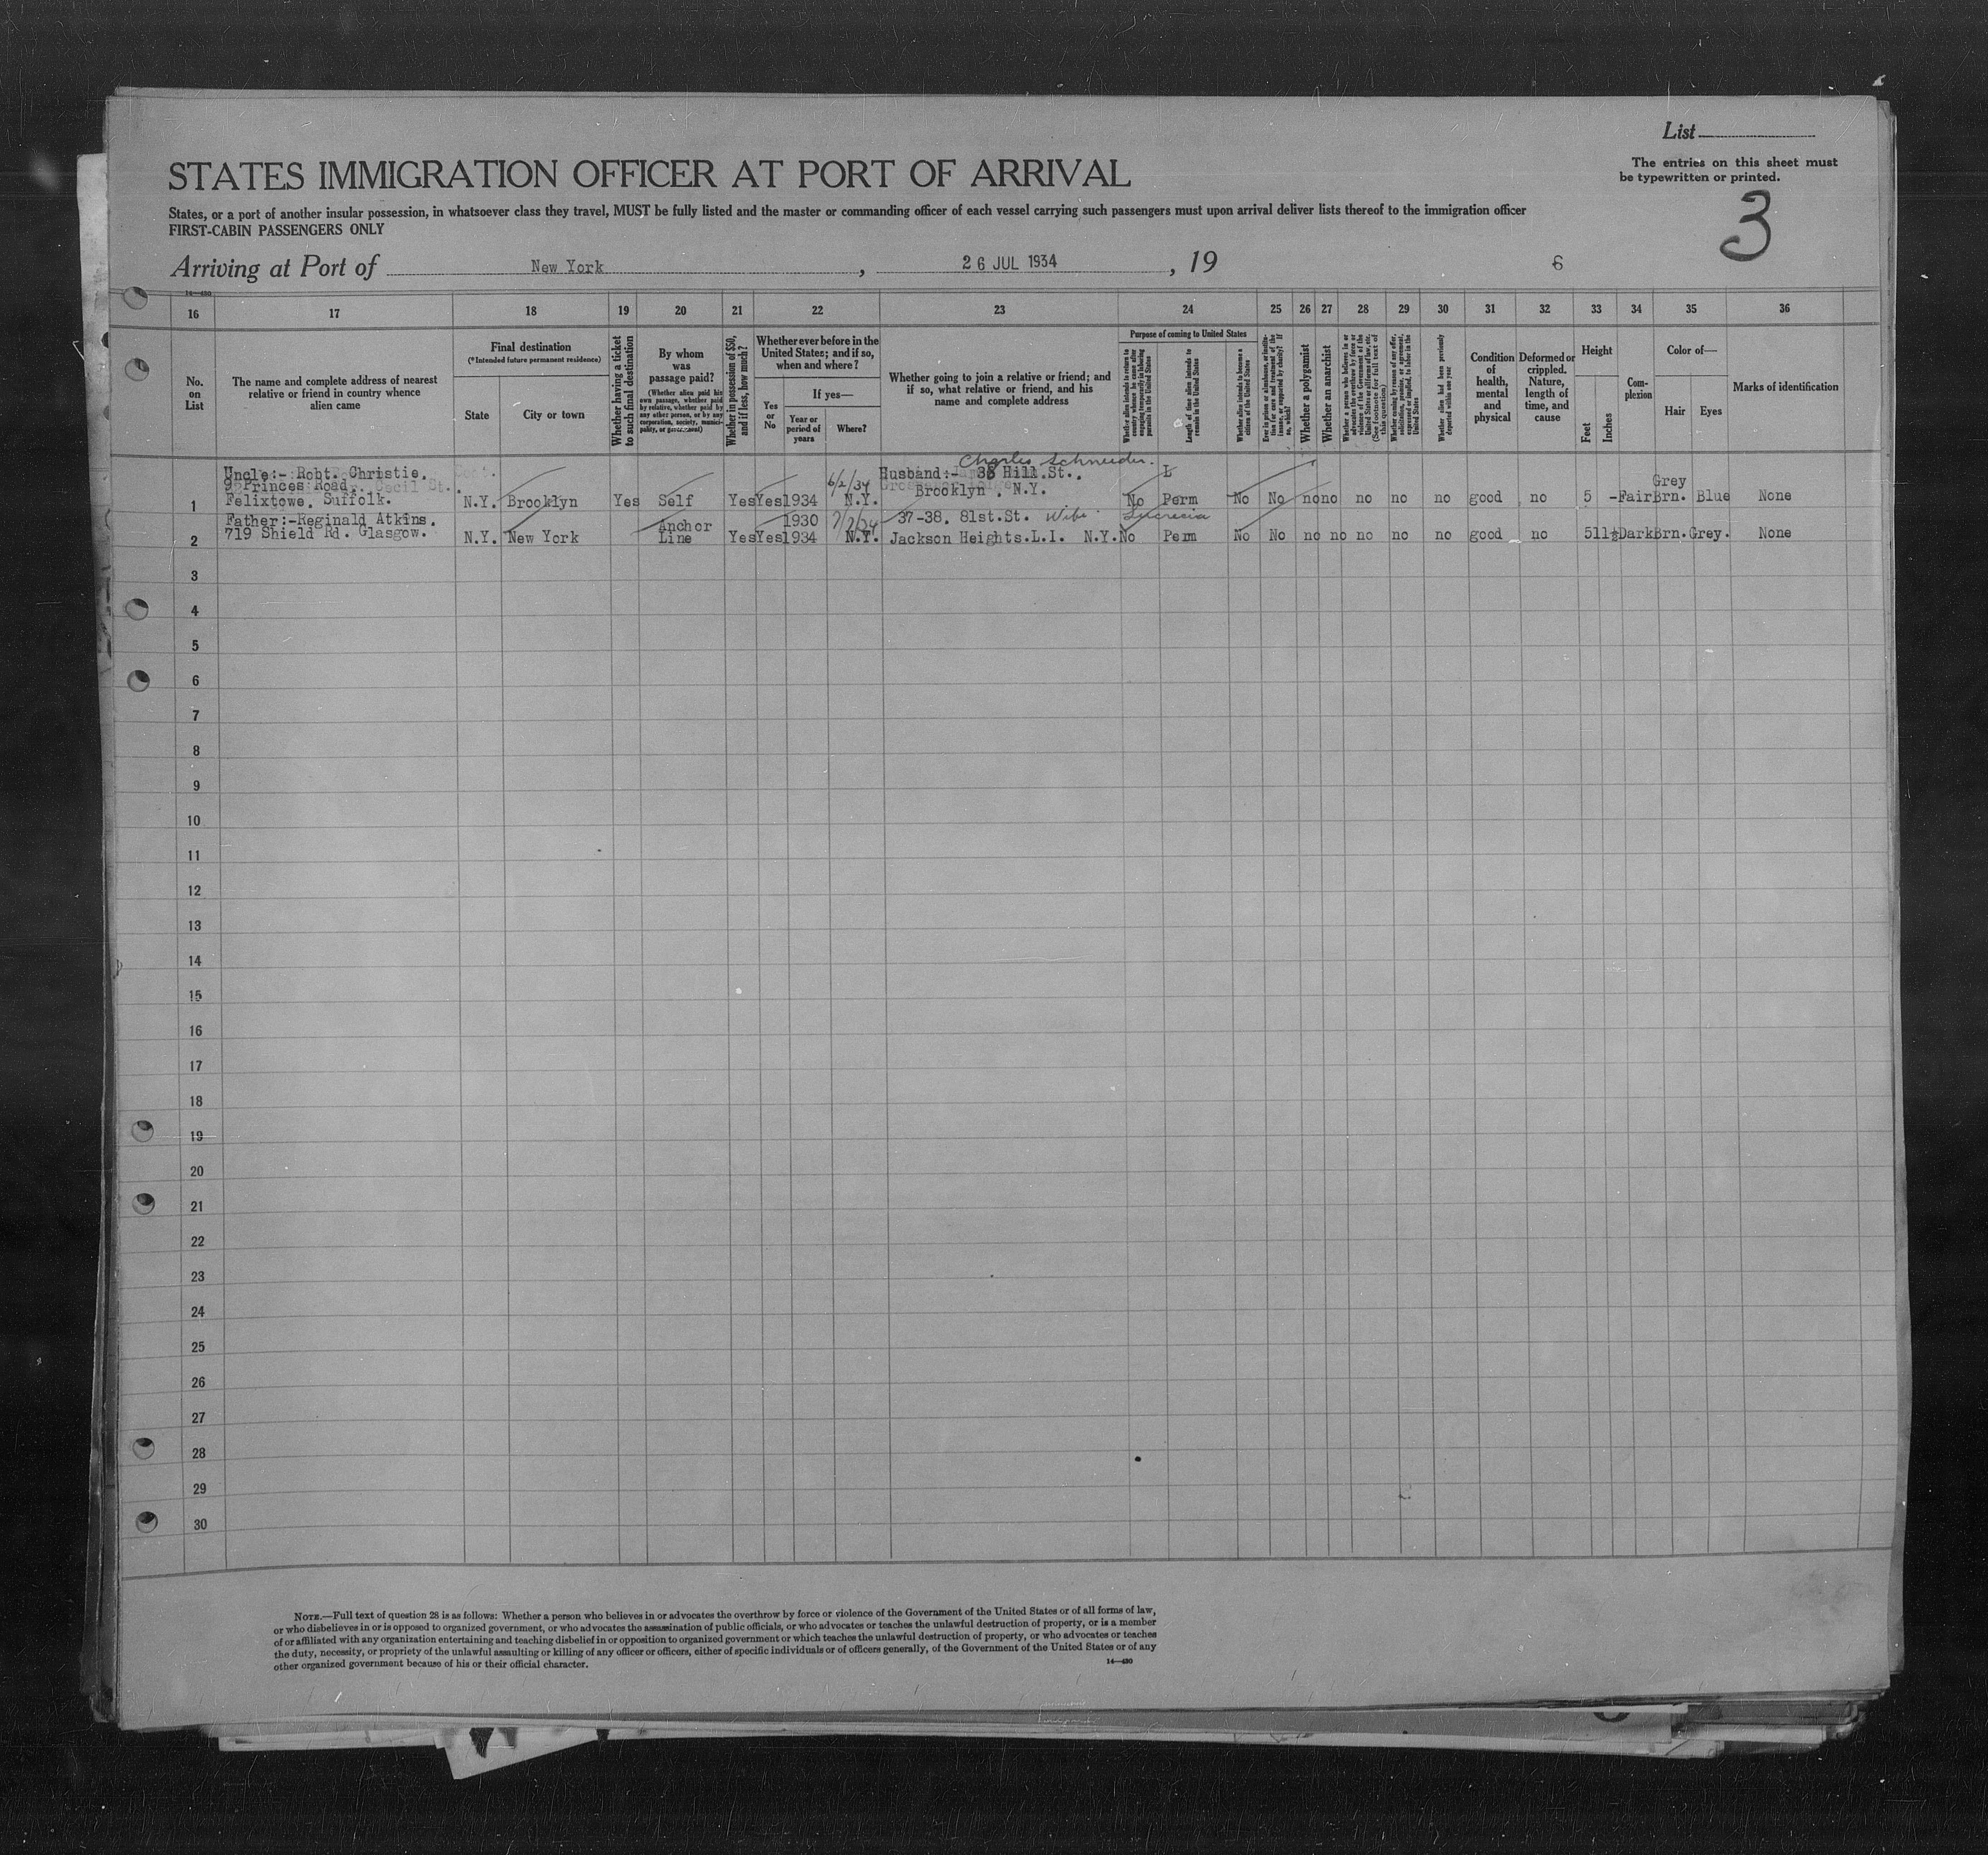 List
The entries on this sheet must
be typewritten or printed.
3
STATES IMMIGRATION OFFICER AT PORT OF ARRIVAL
States, or a port of another insular possession, in whatsoever class they travel, MUST be fully listed and the master or commanding officer of each vessel carrying such passengers must upon arrival deliver lists thereof to the immigration officer
FIRST-CABIN PASSENGERS ONLY
Arriving at Port of New York, 26 JUL 1934, 19
6
14—430
16 17 18 19 20 21 22 23 24 25 26 27 28 29 30 31 32 33 34 35 36
No.
on
List
The name and complete address of nearest
relative or friend in country whence
alien came
Final destination
(*Intended future permanent residence)
State
City or town
Whether having a ticket
to such final destination
By whom
was
passage paid?
(Whether alien paid his
own passage, whether paid
by relative, whether paid by
any other person, or by any
corporation, society, munici-
pality, or government)
Whether in possession of $50,
and if less, how much?
Whether ever before in the
United States; and if so,
when and where?
Yes
or
No
If yes—
Year or
period of
years
Where?
Whether going to join a relative or friend; and
if so, what relative or friend, and his
name and complete address
Purpose of coming to United States
Whether alien intends to return to
country whence he came after
engaging temporarily in laboring
pursuits in the United States
Length of time alien intends to
remain in the United States
Whether alien intends to become a
citizen of the United States
Ever in prison or almshouse, or institu-
tion for care and treatment of the
insane, or supported by charity? If
so, which?
Whether a polygamist
Whether an anarchist
Whether a person who believes in or
advocates the overthrow by force or
violence of the Government of the
United States or all forms of law, etc.
(See footnote for full text of
this question)
Whether coming by reason of any offer,
solicitation, promise, or agreement,
expressed or implied, to labor in the
United States
Whether alien had been previously
deported within one year
Condition
of
health,
mental
and
physical
Deformed or
crippled.
Nature,
length of
time, and
cause
Height
Feet
Inches
Com-
plexion
Color of—
Hair
Eyes
Marks of identification
Charles Schneider.
Uncle:- Robt. Christie. 6/2/34 Husband:- 38 Hill.St.. L
9 Princes Road, Brooklyn . N.Y. Grey
1 Felixtowe. Suffolk. N.Y. Brooklyn Yes Self Yes Yes 1934 N.Y. No Perm No No no no no no no good no 5 - Fair Brn. Blue None
Father:-Reginald Atkins. Anchor 1930 37-38. 81st.St. Wife Lucrecia
2 719 Shield Rd. Glasgow. N.Y. New York Line Yes Yes 1934 N.Y. Jackson Heights.L.I. N.Y. No Perm No No no no no no no good no 5 11½ Dark Brn. Grey. None
3
4
5
6
7
8
9
10
11
12
13
14
15
16
17
18
19
20
21
22
23
24
25
26
27
28
29
30
NOTE.—Full text of question 28 is as follows: Whether a person who believes in or advocates the overthrow by force or violence of the Government of the United States or of all forms of law,
or who disbelieves in or is opposed to organized government, or who advocates the assassination of public officials, or who advocates or teaches the unlawful destruction of property, or is a member
of or affiliated with any organization entertaining and teaching disbelief in or opposition to organized government or which teaches the unlawful destruction of property, or who advocates or teaches
the duty, necessity, or propriety of the unlawful assaulting or killing of any officer or officers, either of specific individuals or of officers generally, of the Government of the United States or of any
other organized government because of his or their official character.
14—430